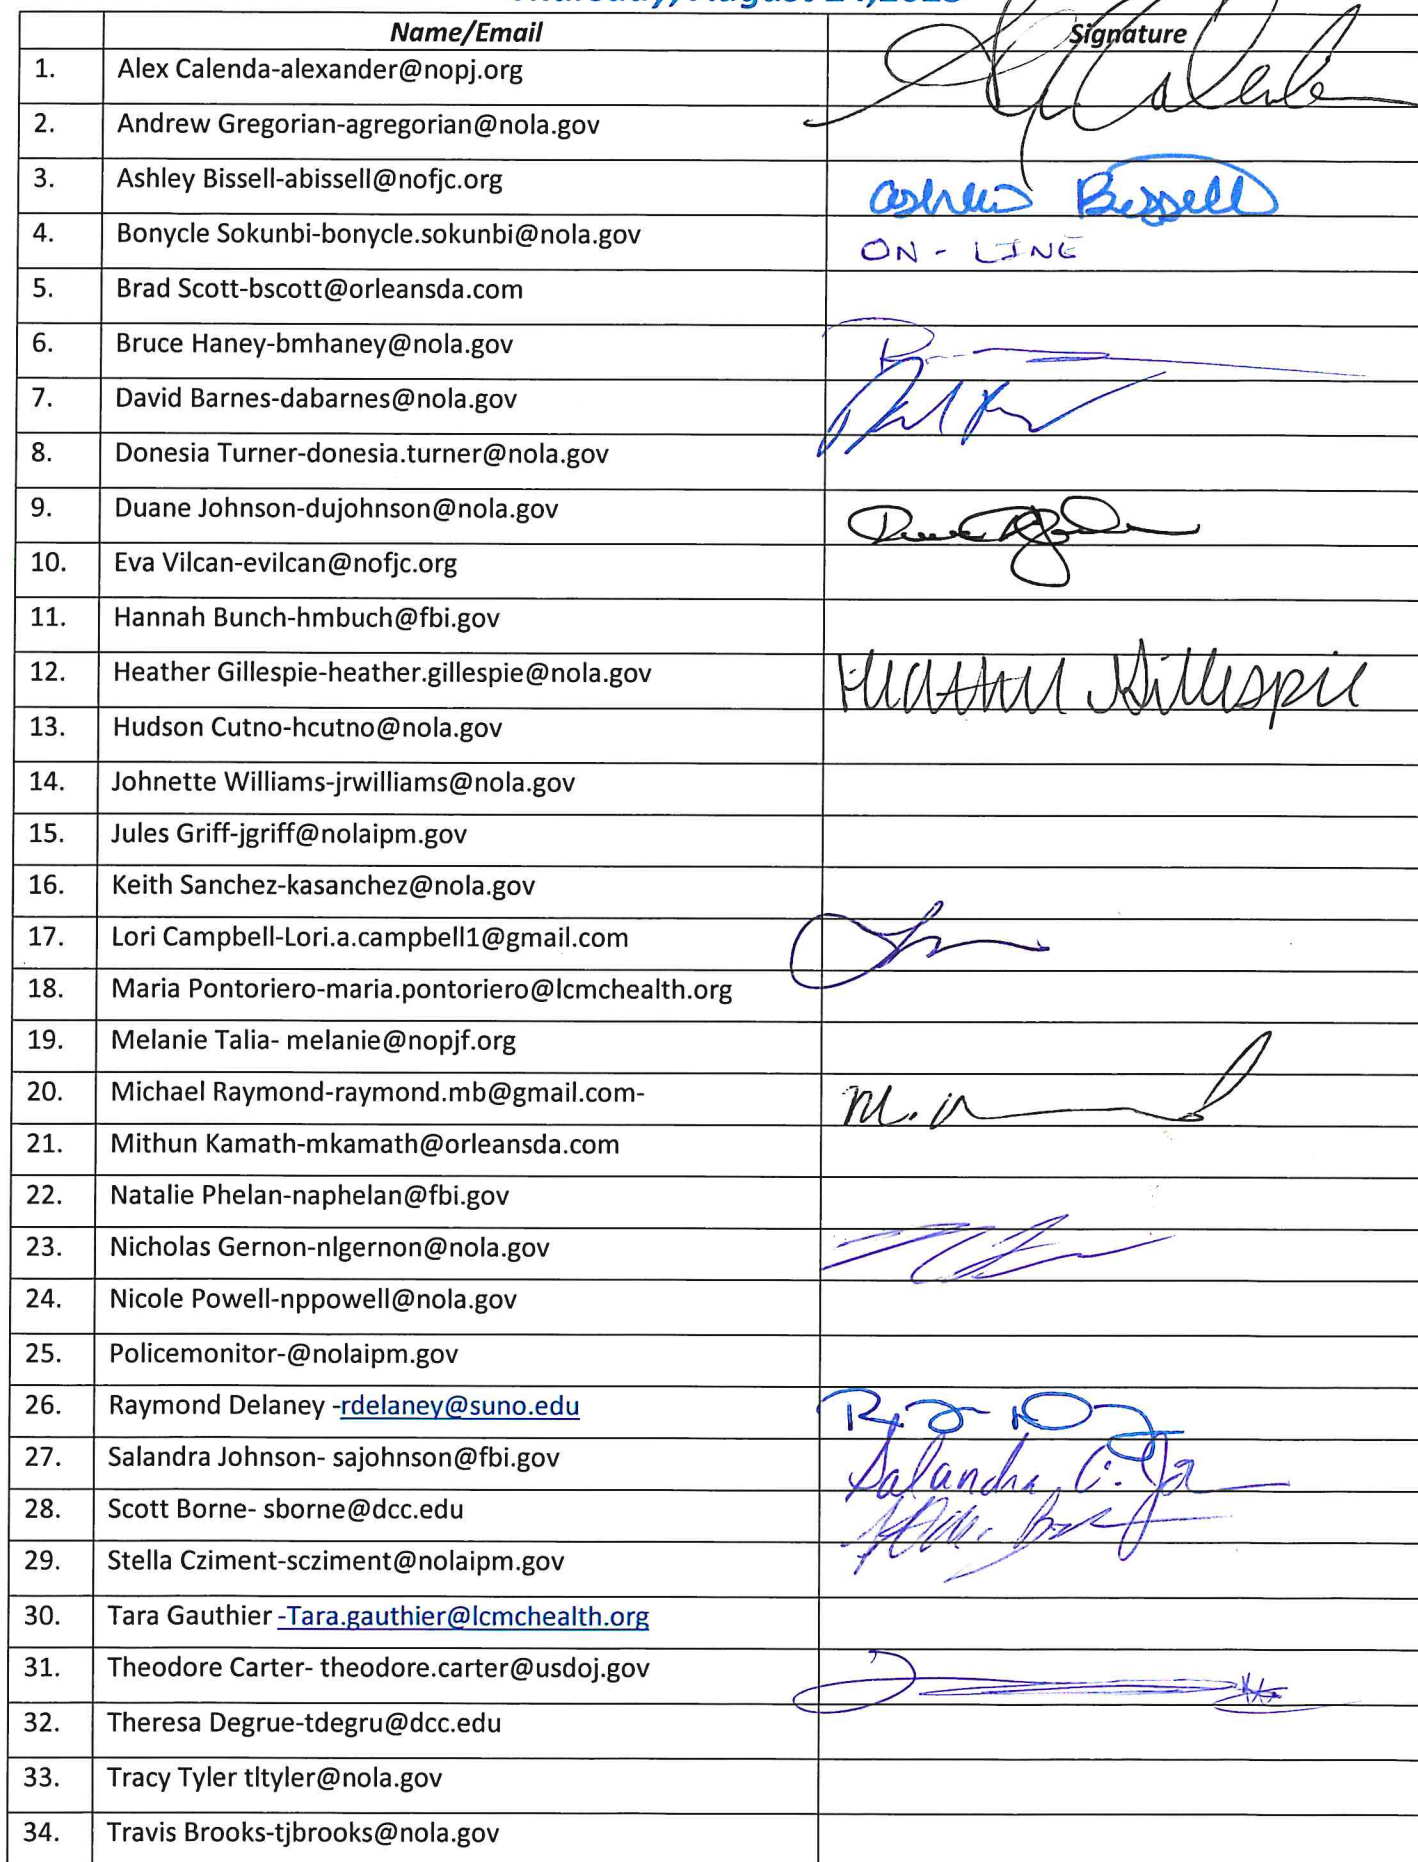 Name/Email Signature
1. Alex Calenda-alexander@nopj.org
2. Andrew Gregorian-agregorian@nola.gov
3. Ashley Bissell-abissell@nofjc.org Bissell
4. Bonycle Sokunbi-bonycle.sokunbi@nola.gov ON-LINE
5. Brad Scott-bscott@orleansda.com
6. Bruce Haney-bmhaney@nola.gov
7. David Barnes-dabarnes@nola.gov
8. Donesia Turner-donesia.turner@nola.gov
9. Duane Johnson-dujohnson@nola.gov
10. Eva Vilcan-evilcan@nofjc.org
11. Hannah Bunch-hmbuch@fbi.gov
12. Heather Gillespie-heather.gillespie@nola.gov Heather Gillespie
13. Hudson Cutno-hcutno@nola.gov
14. Johnette Williams-jrwilliams@nola.gov
15. Jules Griff-jgriff@nolaipm.gov
16. Keith Sanchez-kasanchez@nola.gov
17. Lori Campbell-Lori.a.campbell1@gmail.com
18. Maria Pontoriero-maria.pontoriero@lcmchealth.org
19. Melanie Talia- melanie@nopjf.org
20. Michael Raymond-raymond.mb@gmail.com-
21. Mithun Kamath-mkamath@orleansda.com
22. Natalie Phelan-naphelan@fbi.gov
23. Nicholas Gernon-nlgernon@nola.gov
24. Nicole Powell-nppowell@nola.gov
25. Policemonitor-@nolaipm.gov
26. Raymond Delaney -rdelaney@suno.edu
27. Salandra Johnson- sajohnson@fbi.gov Salandra C. Jo
28. Scott Borne- sborne@dcc.edu
29. Stella Cziment-scziment@nolaipm.gov
30. Tara Gauthier -Tara.gauthier@lcmchealth.org
31. Theodore Carter- theodore.carter@usdoj.gov
32. Theresa Degrue-tdegru@dcc.edu
33. Tracy Tyler tltyler@nola.gov
34. Travis Brooks-tjbrooks@nola.gov